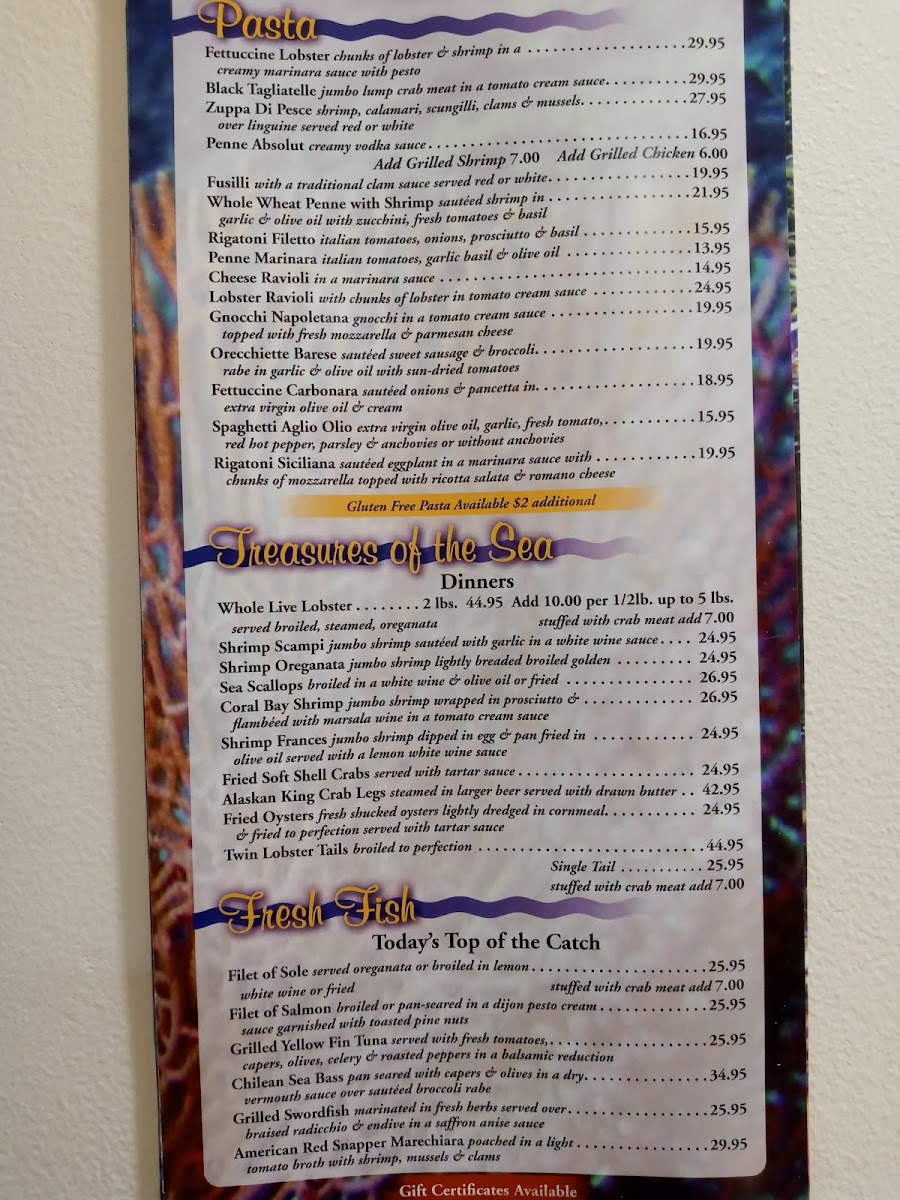 Pasta
Fettuccine Lobster chunks of lobster & shrimp in a ....................29.95
creamy marinara sauce with pesto
Black Tagliatelle jumbo lump crab meat in a tomato cream sauce...........29.95
Zuppa Di Pesce shrimp, calamari, scungilli, clams & mussels..............27.95
over linguine served red or white
Penne Absolut creamy vodka sauce..................................16.95
Add Grilled Shrimp 7.00 Add Grilled Chicken 6.00
Fusilli with a traditional clam sauce served red or white..................19.95
Whole Wheat Penne with Shrimp sautéed shrimp in ..................21.95
garlic & olive oil with zucchini, fresh tomatoes & basil
Rigatoni Filetto italian tomatoes, onions, prosciutto & basil .............15.95
Penne Marinara italian tomatoes, garlic basil & olive oil ................13.95
Cheese Ravioli in a marinara sauce ................................14.95
Lobster Ravioli with chunks of lobster in tomato cream sauce ............24.95
Gnocchi Napoletana gnocchi in a tomato cream sauce ..................19.95
topped with fresh mozzarella & parmesan cheese
Orecchiette Barese sautéed sweet sausage & broccoli....................19.95
rabe in garlic & olive oil with sun-dried tomatoes
Fettuccine Carbonara sautéed onions & pancetta in....................18.95
extra virgin olive oil & cream
Spaghetti Aglio Olio extra virgin olive oil, garlic, fresh tomato,............15.95
red hot pepper, parsley & anchovies or without anchovies
Rigatoni Siciliana sautéed eggplant in a marinara sauce with .............19.95
chunks of mozzarella topped with ricotta salata & romano cheese
Gluten Free Pasta Available $2 additional
Treasures of the Sea
Dinners
Whole Live Lobster ........ 2 lbs. 44.95 Add 10.00 per 1/2lb. up to 5 lbs.
served broiled, steamed, oreganata stuffed with crab meat add 7.00
Shrimp Scampi jumbo shrimp sautéed with garlic in a white wine sauce.... 24.95
Shrimp Oreganata jumbo shrimp lightly breaded broiled golden ......... 24.95
Sea Scallops broiled in a white wine & olive oil or fried ............... 26.95
Coral Bay Shrimp jumbo shrimp wrapped in prosciutto & ............. 26.95
flambéed with marsala wine in a tomato cream sauce
Shrimp Frances jumbo shrimp dipped in egg & pan fried in ............ 24.95
olive oil served with a lemon white wine sauce
Fried Soft Shell Crabs served with tartar sauce....................... 24.95
Alaskan King Crab Legs steamed in larger beer served with drawn butter .. 42.95
Fried Oysters fresh shucked oysters lightly dredged in cornmeal........... 24.95
& fried to perfection served with tartar sauce
Twin Lobster Tails broiled to perfection .............................44.95
Single Tail ...........25.95
stuffed with crab meat add 7.00
Fresh Fish
Today's Top of the Catch
Filet of Sole served oreganata or broiled in lemon.......................25.95
white wine or fried stuffed with crab meat add 7.00
Filet of Salmon broiled or pan-seared in a dijon pesto cream ..............25.95
sauce garnished with toasted pine nuts
Grilled Yellow Fin Tuna served with fresh tomatoes,....................25.95
capers, olives, celery & roasted peppers in a balsamic reduction
Chilean Sea Bass pan seared with capers & olives in a dry................34.95
vermouth sauce over sautéed broccoli rabe
Grilled Swordfish marinated in fresh herbs served over..................25.95
braised radicchio & endive in a saffron anise sauce
American Red Snapper Marechiara poached in a light .................29.95
tomato broth with shrimp, mussels & clams
Gift Certificates Available